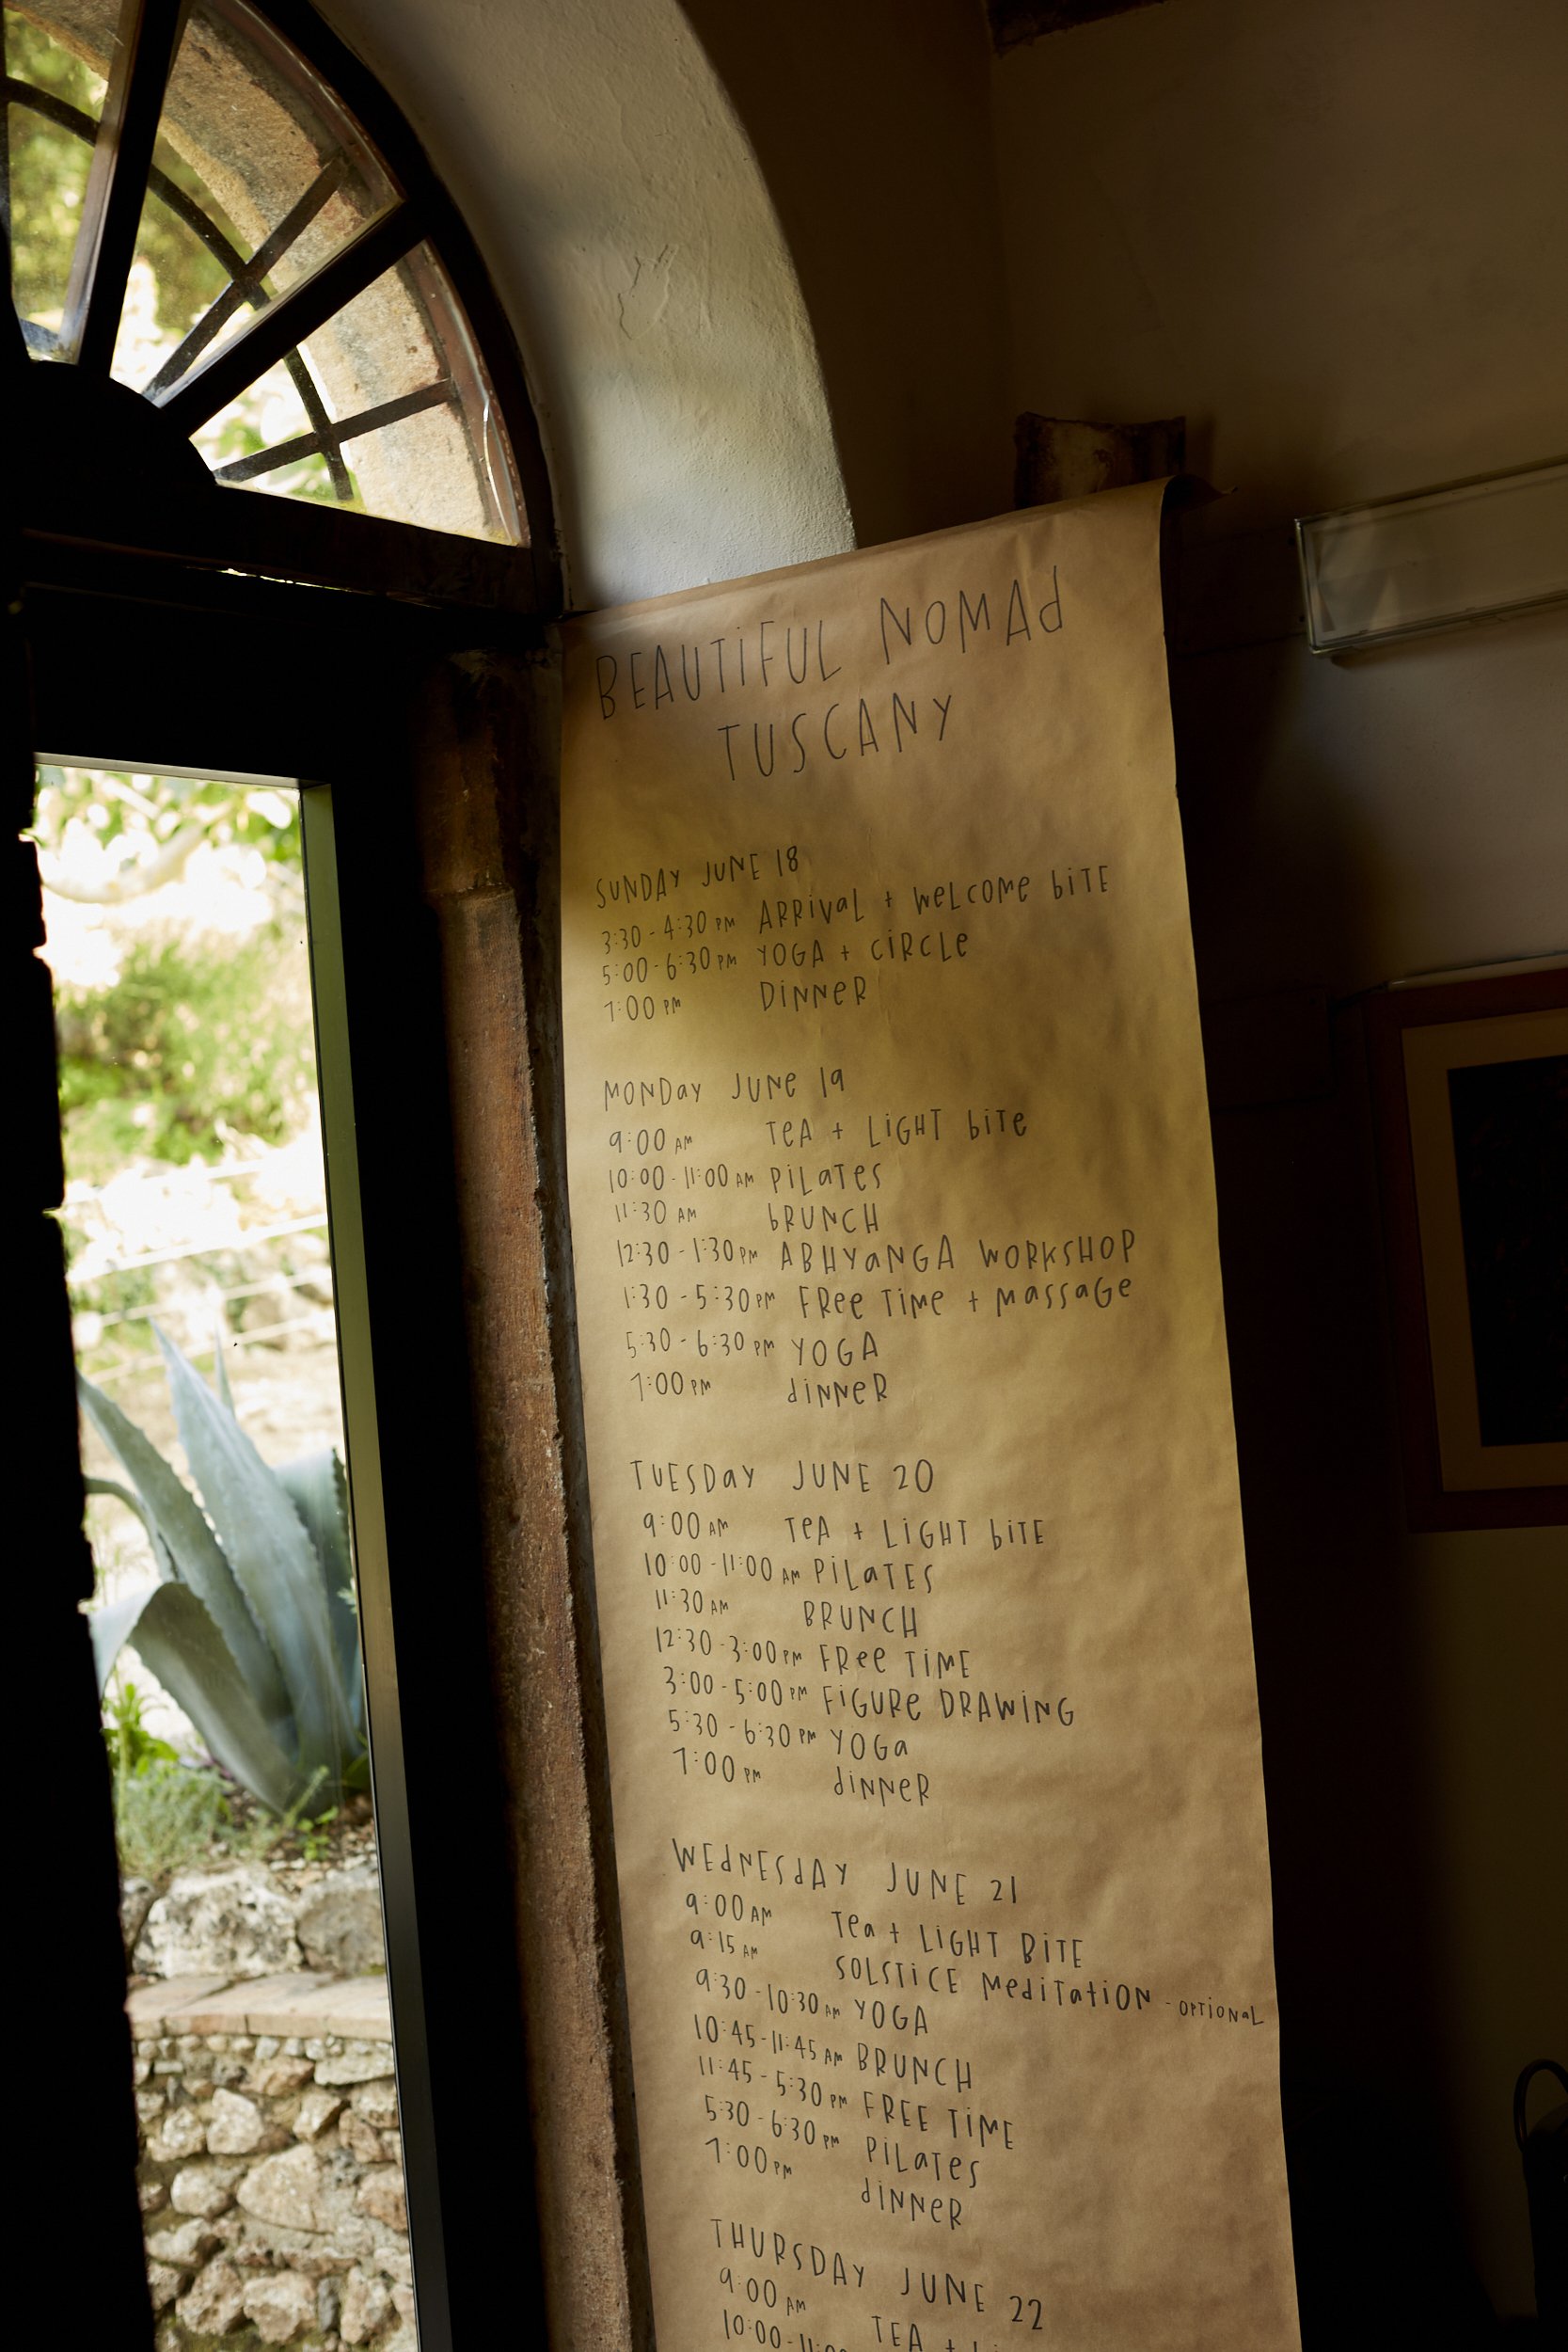 BEAUTiFUL NOMAd
TUSCANY
SUNDAY JUNE 18
3:30 - 4:30 PM ARRiVaL + WeLCOMe biTE
5:00 - 6:30 PM YOGA + CiRCLe
7:00 PM DiNNeR
MONDay JUNe 19
9:00 AM TeA + LiGHT biTe
10:00 - 11:00 AM PiLaTES
11:30 AM bRUNCH
12:30 - 1:30 PM ABHYaNGA WORKSHOP
1:30 - 5:30 PM FRee TiMe + MassaGe
5:30 - 6:30 PM YOGA
7:00 PM diNNeR
TUESDay JUNE 20
9:00 AM TeA + LiGHT biTE
10:00 - 11:00 AM PiLaTES
11:30 AM BRUNCH
12:30 - 3:00 PM FRee TiME
3:00 - 5:00 PM FiGURe DRAWiNG
5:30 - 6:30 PM YOGa
7:00 PM diNNeR
WEdNESdAY JUNE 21
9:00 AM Tea + LiGHT BiTE
9:15 AM SOLSTiCE MediTaTiON - OPTiONaL
9:30 - 10:30 AM YOGA
10:45 - 11:45 AM BRUNCH
11:45 - 5:30 PM FREE TiME
5:30 - 6:30 PM PiLaTeS
7:00 PM diNNeR
THURSDAY JUNE 22
9:00 AM TEA +
10:00 -